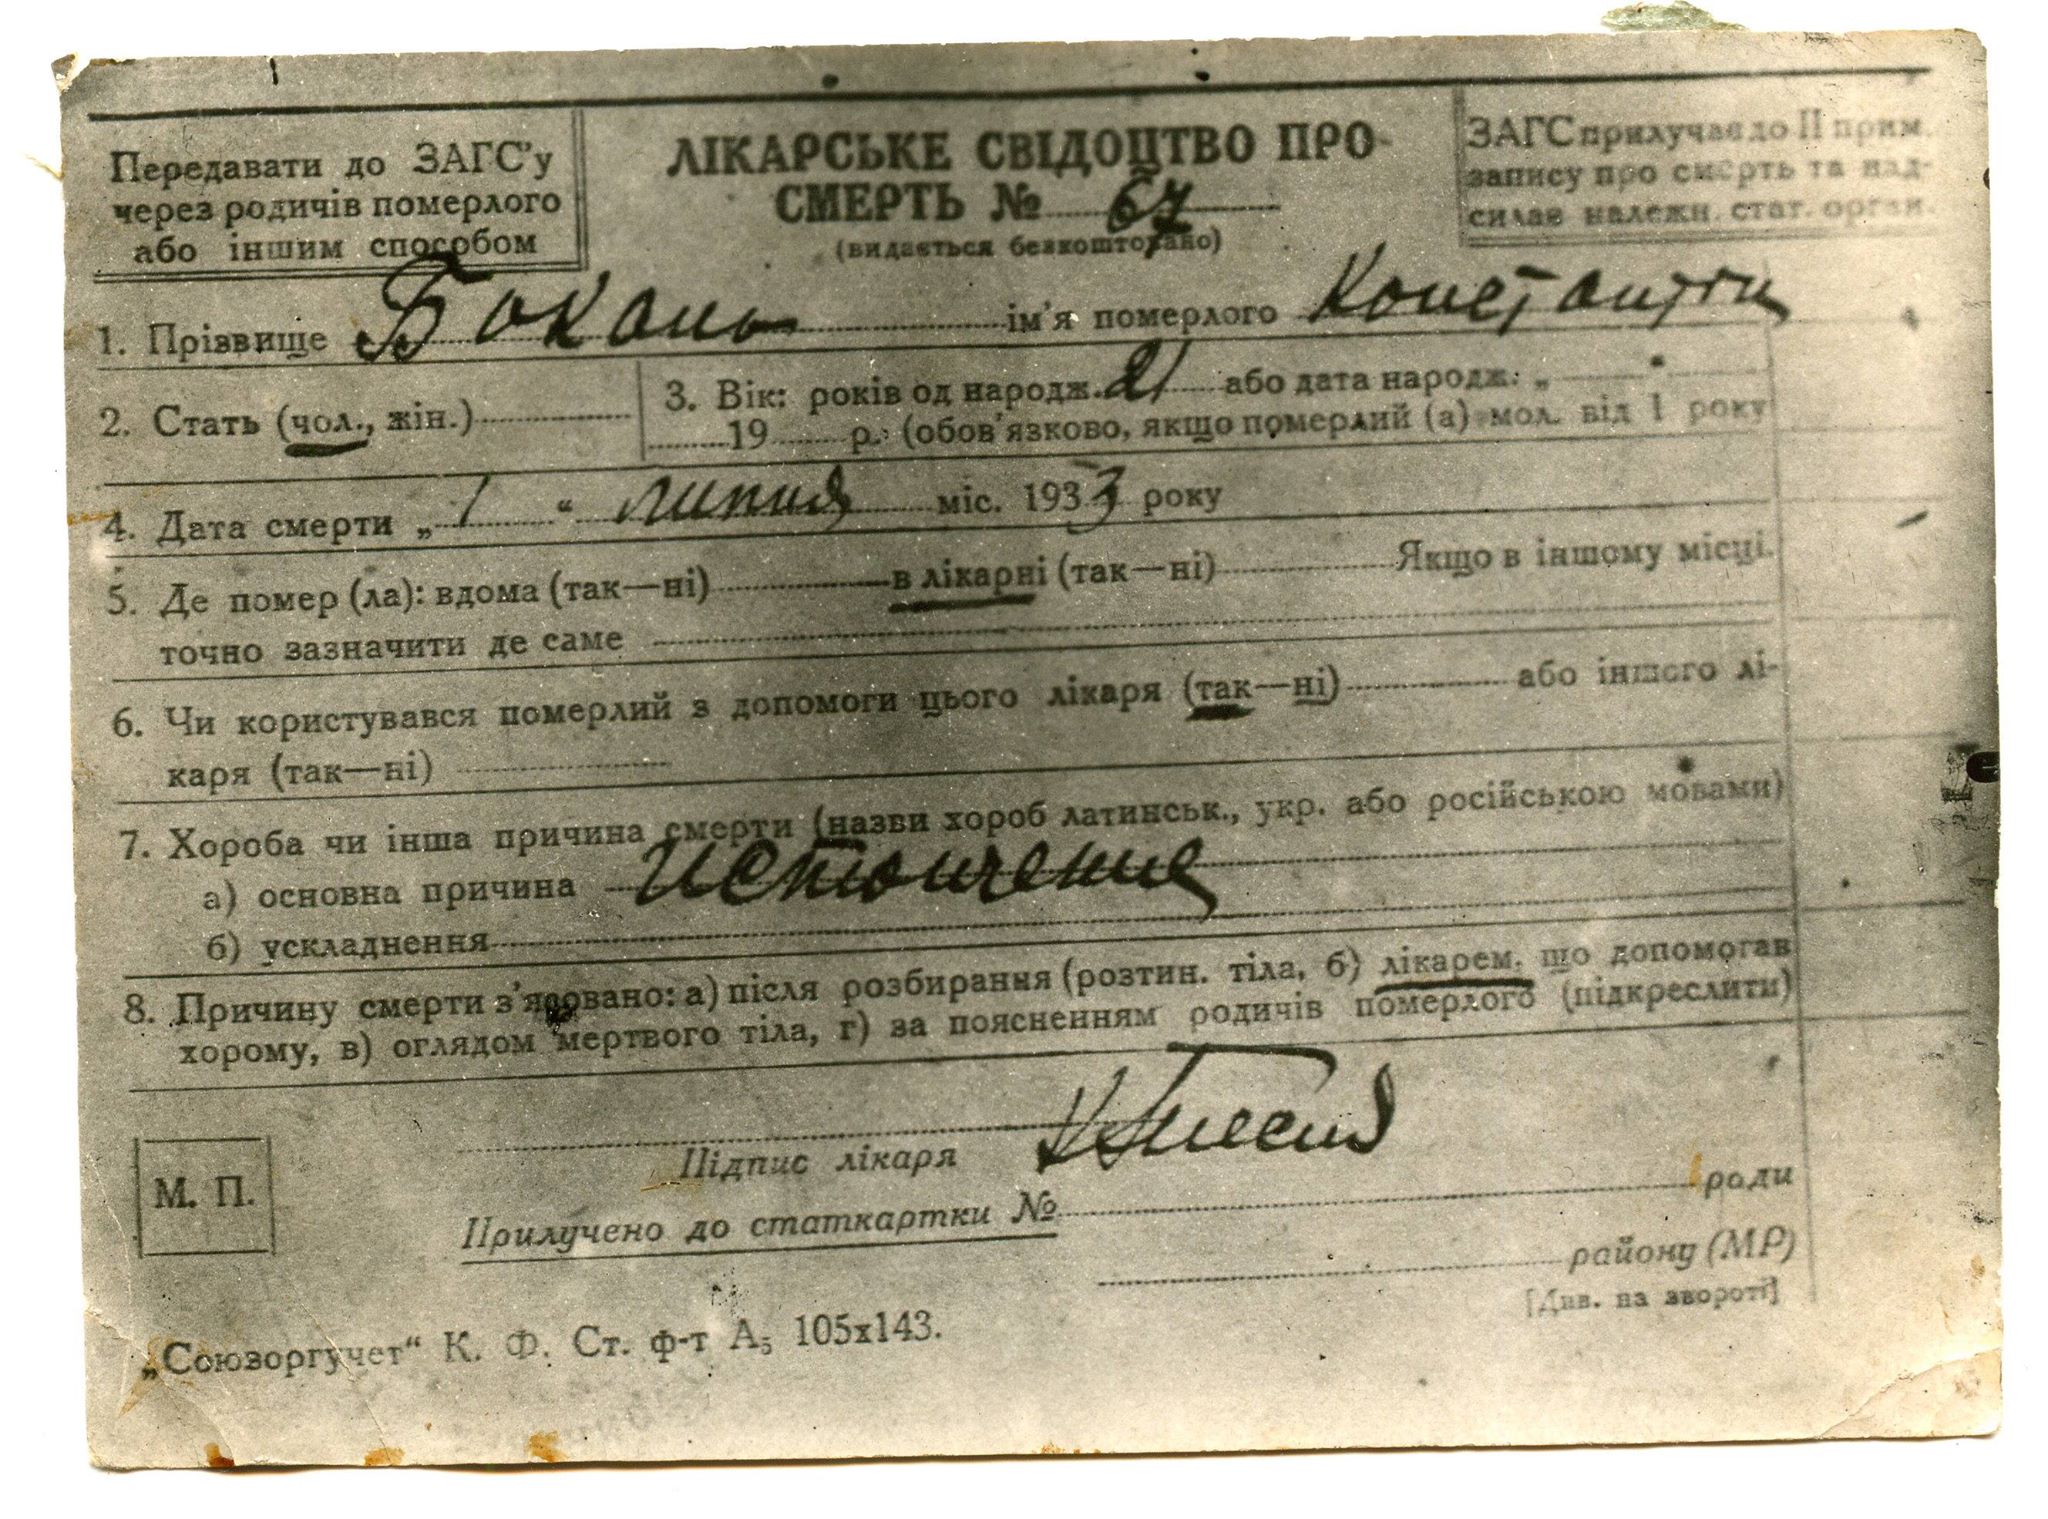 Передавати до ЗАГС'у
через родичів померлого
або іншим способом
ЛІКАРСЬКЕ СВІДОЦТВО ПРО
СМЕРТЬ № 67
(видається безкоштовно)
ЗАГС прилучає до II прим.
запису про смерть та над-
силає належн. стат. орган.
1. Прізвище Бокань ім'я померлого Константин
2. Стать (чол., жін.)
3. Вік: років од народж. 21 або дата народж. „ “
19 р. (обов'язково, якщо померлий (а) мол. від 1 року
4. Дата смерти „ 1 “ липня міс. 1933 року
5. Де помер (ла): вдома (так—ні) в лікарні (так—ні) Якщо в іншому місці.
точно зазначити де саме
6. Чи користувався померлий з допомоги цього лікаря (так—ні) або іншого лі-
каря (так—ні)
7. Хороба чи інша причина смерти (назви хороб латинськ., укр. або російською мовами)
а) основна причина истощение
б) ускладнення
8. Причину смерти з'ясовано: а) після розбирання (розтин. тіла, б) лікарем, що допомогав
хорому, в) оглядом мертвого тіла, г) за поясненням родичів померлого (підкреслити)
М. П.
Підпис лікаря
Прилучено до статкартки № ради
району (МР)
[Див. на звороті]
„Союзоргучет“ К. Ф. Ст. ф-т А₅ 105х143.